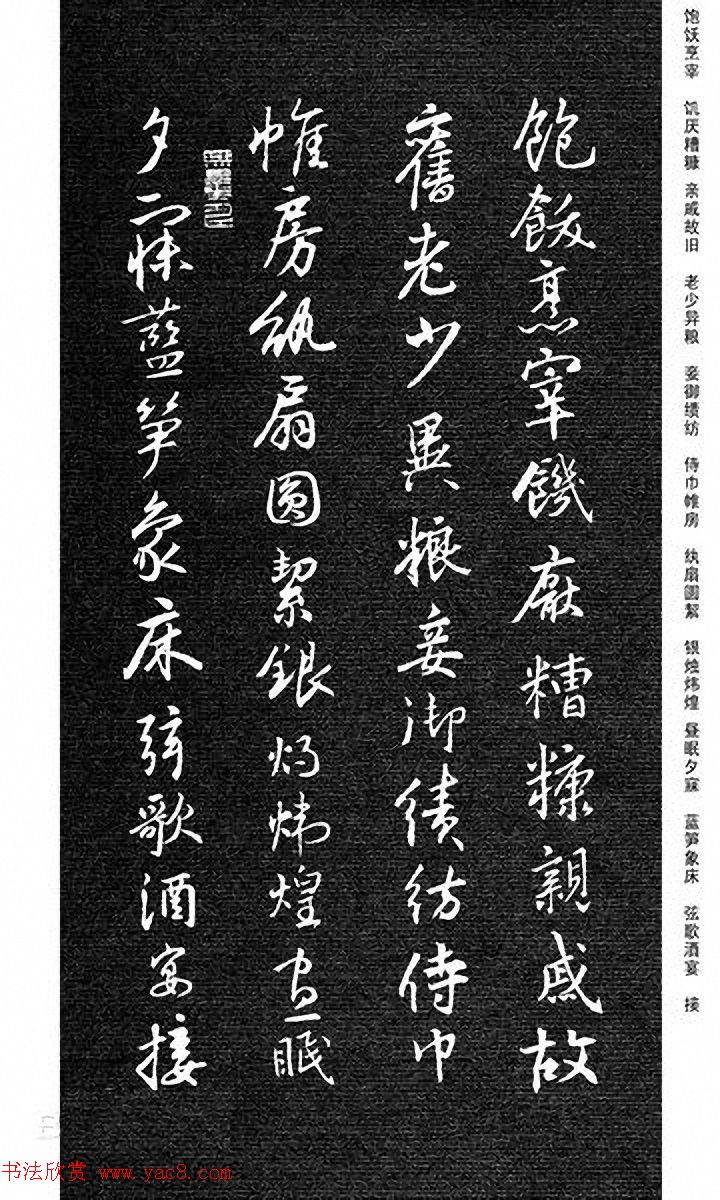 饱饫烹宰 饥厌糟糠 亲戚故旧 老少异粮 妾御绩纺 侍巾帷房 纨扇圆絜 银烛炜煌 昼眠夕寐 蓝笋象床 弦歌酒宴 接
飽飫烹宰饑厭糟糠親戚故
舊老少異粮妾御績紡侍巾
帷房紈扇圓絜銀燭煒煌晝眠
夕寐藍笋象床弦歌酒宴接
书法欣赏 www.yac8.com